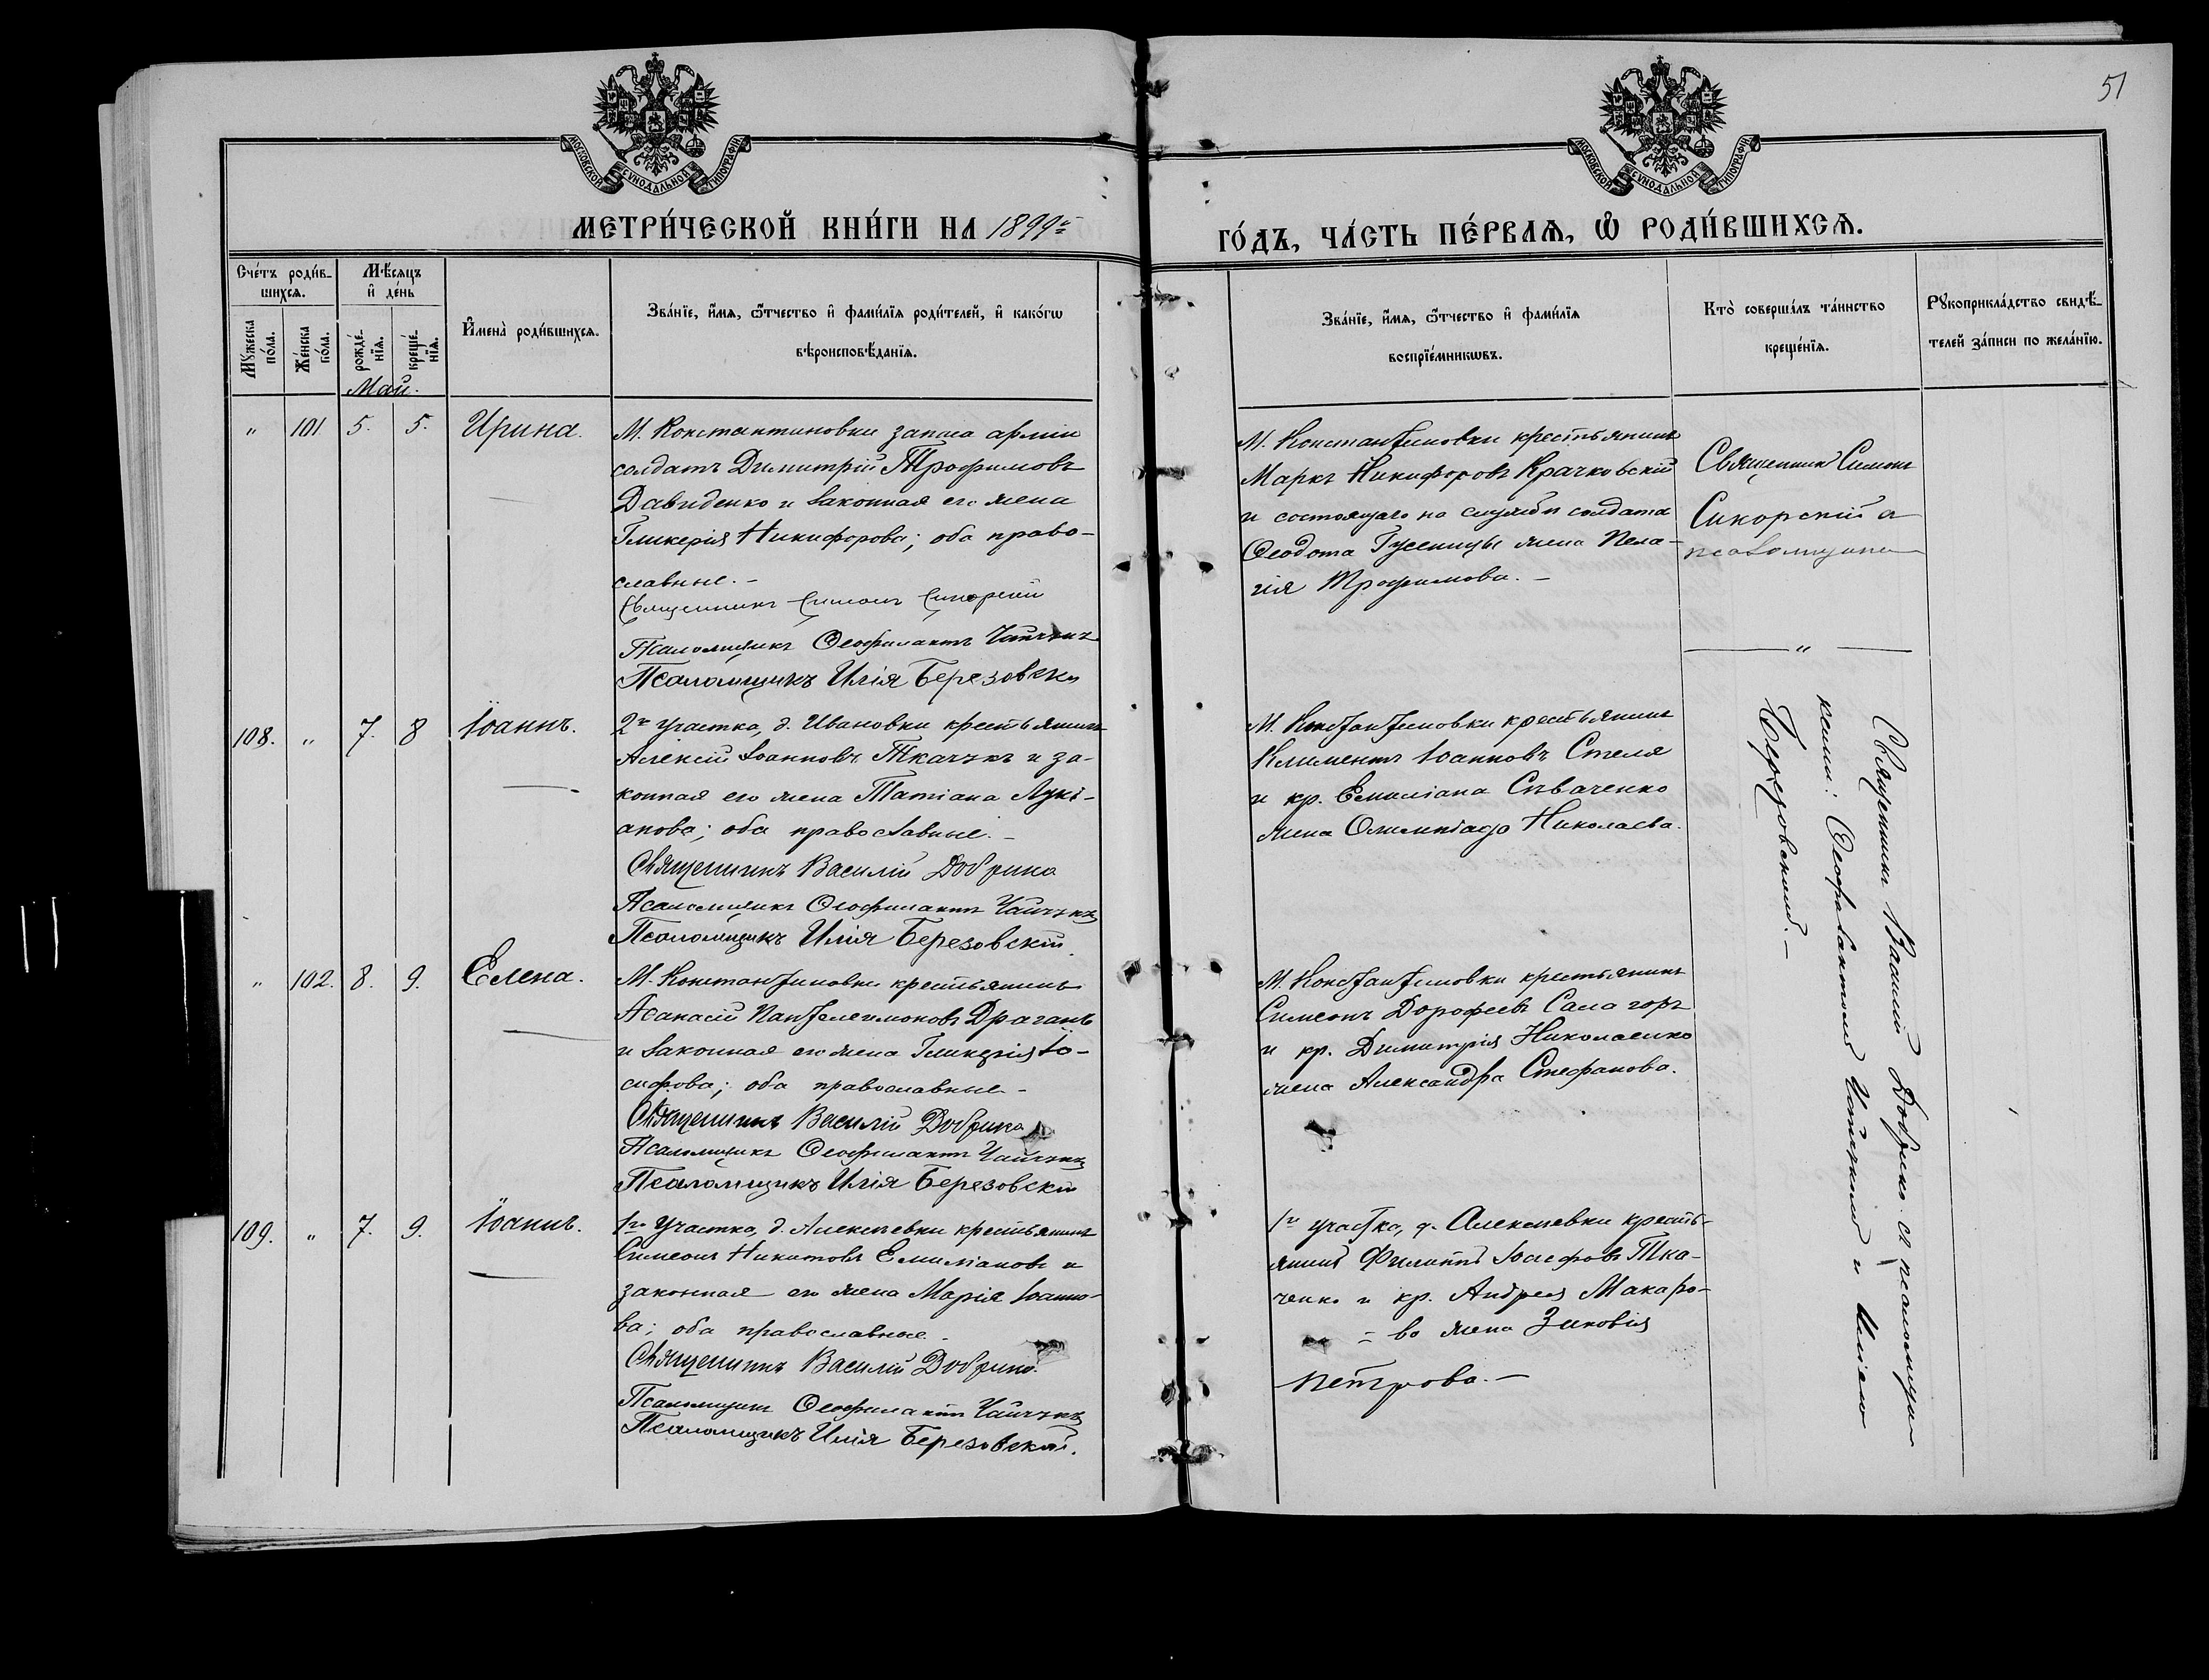 51
МОСКОВСКОЙ СѴНОДАЛЬНОЙ ТИПОГРАФІИ
МОСКОВСКОЙ СѴНОДАЛЬНОЙ ТИПОГРАФІИ
МЕТРИ́ЧЕСКОЙ КНИ́ГИ НА 1899й
ГО́ДЪ, ЧА́СТЬ ПЕ́РВАѦ, Ѡ҆ РОДИ́ВШИХСѦ.
Сче́тъ роди́в-
шихсѧ.
Мꙋ́жеска по́ла.
Же́нска по́ла.
Мѣ́сѧцъ
и҆ де́нь
рожде́-
нїѧ.
креще́-
нїѧ.
И҆мена̀ роди́вшихсѧ.
Зва́нїе, и҆́мѧ, ѻ҆́тчество и҆ фами́лїѧ роди́телей, и҆ како́гѡ
вѣроисповѣ́данїѧ.
Зва́нїе, и҆́мѧ, ѻ҆́тчество и҆ фами́лїѧ
воспрїе́мникѡвъ.
Кто̀ соверша́лъ та́инство
креще́нїѧ.
Рꙋкоприкла́дство свидѣ́-
телей за́писи по жела́нїю.
Май.
" 101 5. 5. Ирина.
М. Константиновки запаса арміи
солдатъ Димитрій Трофимовъ
Давиденко и законная его жена
Гликерія Никифорова; оба право-
славные. -
Священникъ Симонъ Сикорскій
Псаломщикъ Ѳеофилактъ Чайчукъ
Псаломщикъ Илія Березовскій
М. Константиновки крестьянинъ
Маркъ Никифоровъ Крачковскій
и состоящаго на службѣ солдата
Ѳеодота Гусеницы жена Пела-
гія Трофимова. -
Священникъ Симонъ
Сикорскій с
псаломщика
"
108. " 7. 8 Іоаннъ.
2го участка, д. Ивановки крестьянинъ
Алексій Іоанновъ Ткачукъ и за-
конная его жена Татіана Лукі-
анова; оба православные. -
Священникъ Василій Добрико
Псаломщикъ Ѳеофилактъ Чайчукъ
Псаломщикъ Илія Березовскій.
М. Константиновки крестьянинъ
Климентъ Іоанновъ Стеля
и кр. Емиліана Сѣваченко
жена Олимпіада Николаева.
Священникъ Василій Добрико съ псаломщи
ками: Ѳеофилактомъ Чайчукомъ и Иліею
Березовскимъ. -
" 102. 8. 9. Елена.
М. Константиновки крестьянинъ
Аѳанасій Пантелеимоновъ Драганъ
и законная его жена Гликерія Іо-
сифова; оба православные -
Священникъ Василій Добрико
Псаломщикъ Ѳеофилактъ Чайчукъ
Псаломщикъ Илія Березовскій
М. Константиновки крестьянинъ
Симеонъ Дорофеевъ Салагоръ
и кр. Димитрія Николаенко
жена Александра Стефанова.
109. " 7. 9. Іоаннъ.
1го участка, д. Алексѣевки крестьянинъ
Симеонъ Никитовъ Емиліановъ и
законная его жена Марія Іоанно-
ва; оба православные -
Священникъ Василій Добрико.
Псаломщикъ Ѳеофилактъ Чайчукъ
Псаломщикъ Илія Березовскій.
1го участка, д. Алексѣевки кресть-
янинъ Филиппъ Іосифовъ Тка-
ченко и кр. Андрея Макаро-
= во жена Зиновія
Петрова. -